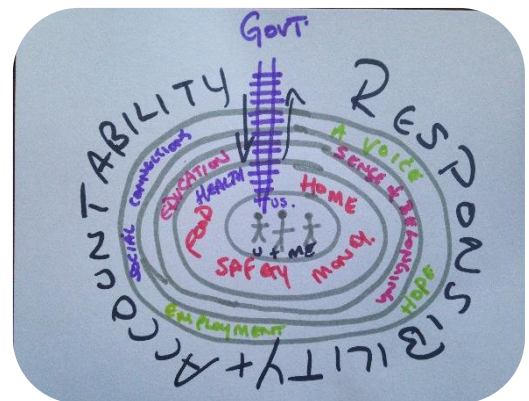 GOVT.
RESPONSIBILITY + ACCOUNTABILITY
A VOICE
SENSE OF BELONGING
HOPE
EMPLOYMENT
SOCIAL CONNECTIONS
EDUCATION
HEALTH
HOME
FOOD
SAFETY
MONEY
US.
U + ME